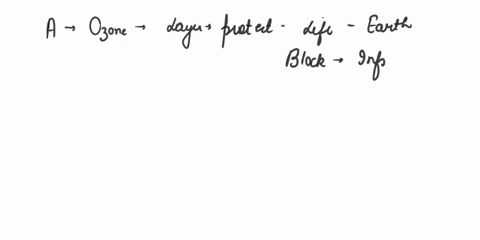 A → Ozone → Layer → protect - Life - Earth
Block → Info